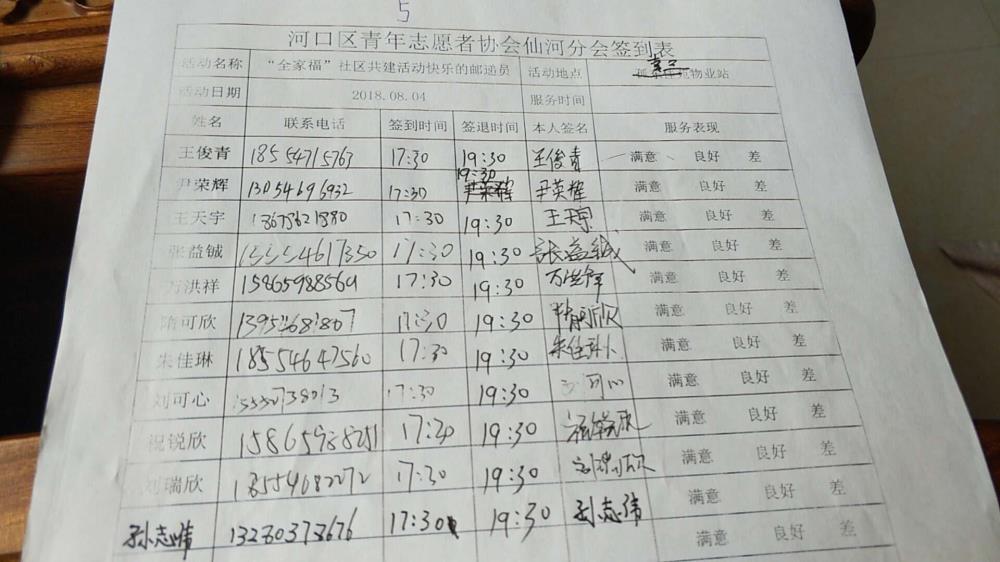 5
河口区青年志愿者协会仙河分会签到表
活动名称 “全家福”社区共建活动快乐的邮递员 活动地点 物业站
活动日期 2018.08.04 服务时间
姓名 联系电话 签到时间 签退时间 本人签名 服务表现
王俊青 18554715763 17:30 19:30 王俊青 满意 良好 差
19:30
尹荣辉 13054696932 17:30 尹荣辉 尹荣辉 满意 良好 差
王天宇 18678621880 17:30 19:30 王天宇 满意 良好 差
张益铖 17:30 19:30 张益铖 满意 良好 差
万洪祥 15865988560 17:30 19:30 万洪祥 满意 良好 差
隋可欣 17:30 19:30 隋可欣 满意 良好 差
朱佳琳 18554647560 17:30 19:30 朱佳琳 满意 良好 差
刘可心 17:30 19:30 刘可心 满意 良好 差
祝锐欣 15865988251 17:30 19:30 祝锐欣 满意 良好 差
刘瑞欣 17:30 19:30 刘瑞欣 满意 良好 差
孙志伟 13280378676 17:30 19:30 孙志伟 满意 良好 差